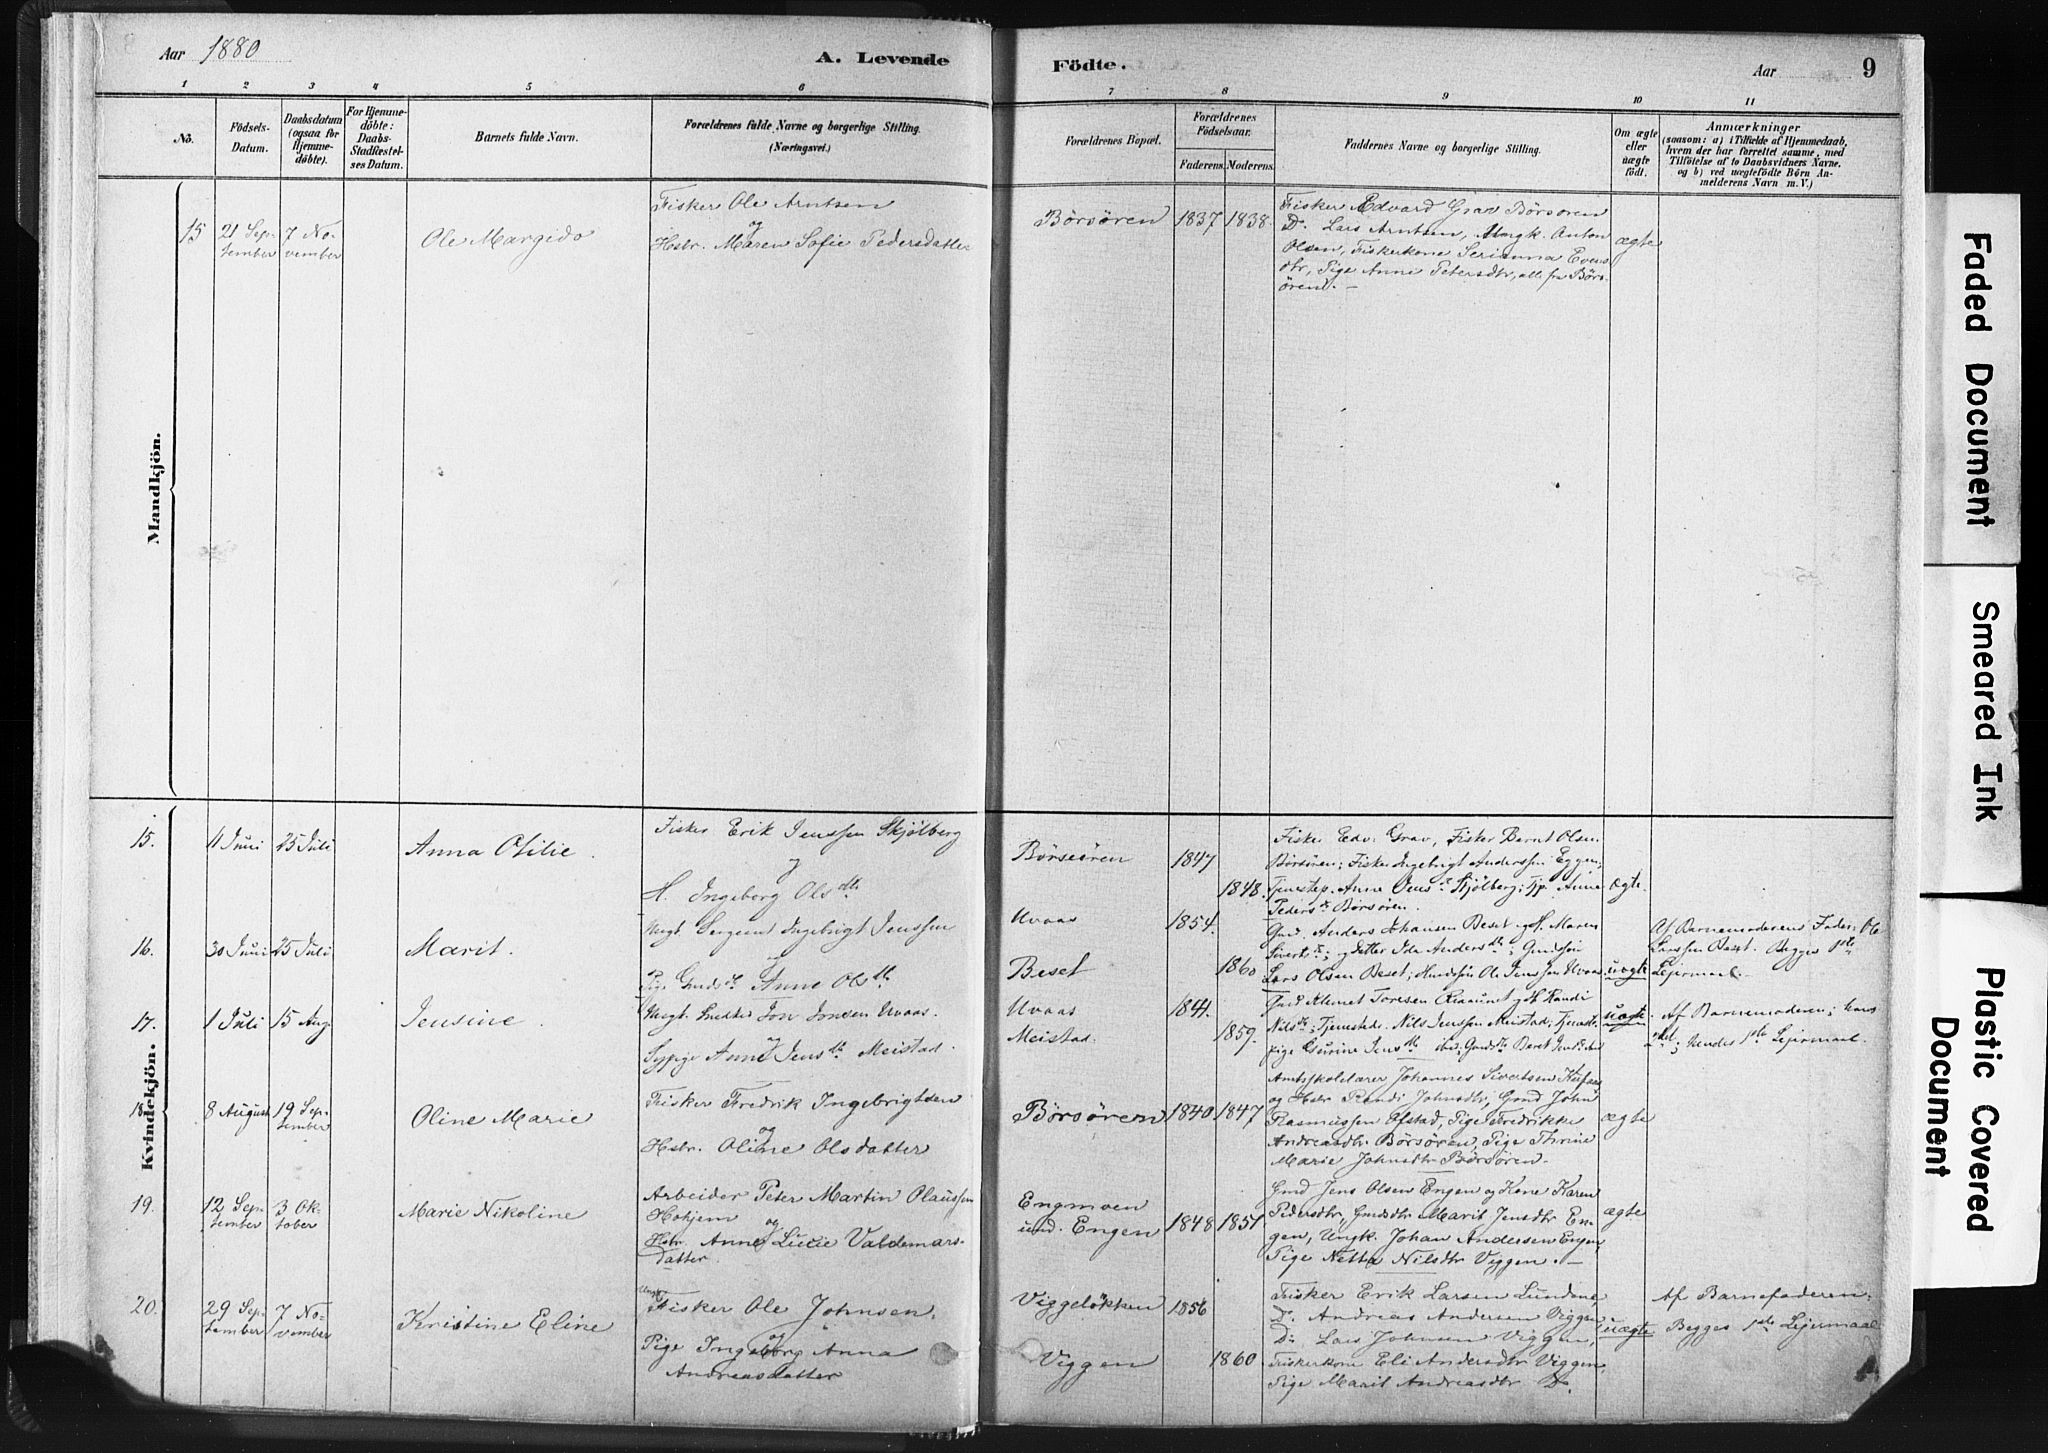 Aar 1880
A. Levende
Födte.
Aar
9
1 2 3 4 5 6 7 8 9 10 11
No.
Födsels-
Datum.
Daabsdatum
(ogsaa for
Hjemme-
döbte).
For Hjemme-
döbte:
Daabs-
Stadfæstel-
ses Datum.
Barnets fulde Navn.
Forældrenes fulde Navne og borgerlige Stilling.
(Næringsvei.)
Forældrenes Bopæl.
Forældrenes
Födselsaar.
Faderens. Moderens.
Faddernes Navne og borgerlige Stilling.
Om ægte
eller
uægte
født.
Anmærkninger
(saasom: a) i Tilfælde af Hjemmedaab,
hvem der har forrettet samme, med
Tilföielse af to Daabsvidners Navne.
og b) ved uægtefödte Börn An-
melderens Navn m. V.)
Mandkjön.
15
21 Sep-
tember
7 No-
vember
Ole Margido
Fisker Ole Arntsen
og
Hstr. Maren Sofie Pedersdatter
Börsören
1837
1838
Fisker Edvard Grav Börsören
D. Lars Arntsen, Ungk. Anton
Olsen, Fiskerkone Serianna Evens
dtr, Pige Anne Petersdtr, alle fra Börs-
ören. —
ægte
Kvindekjön.
15.
11 Juni
25 Juli
Anna Otilie.
Fisker Erik Jenssen Skjölberg
og
H. Ingeborg Olsdtr
Börseören
1847
1848.
Fisker Edv. Grav, Fisker Bernt Olsen
Börsören; Fisker Ingebrigt Anderssen Eggen;
Tjenestep. Anne Jensdr Skjölberg; Tjp. Anne
Pedersdr Börsören.
ægte.
16.
30 Juni
25 Juli
Marit.
Ungk. Sergeant Ingebrigt Jenssen
og
Pige Gmdsdt Anne Olsdtr
Uvaas
Beset
1854.
1860
Gmd. Anders Johansen Beset og H. Maren
Sivertsdtr; og Datter Ida Andersdtr; Gmdssön
Lars Olsen Beset; Huusssön Ole Jenssen Uvaas
uægte
Af Barnemoderens Fader: Ole
Larssen Beset. Begges 1ste
Lejermaal.
17.
1 Juli
15 Aug.
Jensine.
Ungk. Snedker Jon Jonsen Uvaas.
og
Sypige Anne Jensdtr Meistad.
Uvaas
Meistad.
1844.
1859.
Gmd Klemet Toresen og H Randi
Nilsdtr; Tjenestedr. Nils Jenssen Meistad; Tjeneste
pige Gurine Jensdtr ibid; Gmdsdtr Beret Jensdtr ibid
uægte.
Af Barnemoderen; hans
2det; hendes 1ste Lejermaal.
18.
8 August
19 Sep-
tember
Oline Marie
Fisker Fredrik Ingebrigtsen
og
Hstr. Oline Olsdatter
Börsören
1840
1847
Amtsskolelærer Johannes Sivertsen
og Hstr Randi Johnsdtr, Gmd John
Rasmussen Ofstad, Pige Fredrikke
Andreasdtr Börsören, Pige Thrine
Marie Johnsdtr Börsören.
ægte
19.
12 Sep-
tember
3 Ok-
tober
Marie Nikoline
Arbeider Peter Martin Olaussen
Hokjem
og
Hstr. Anne Lucie Valdemars-
datter
Engmoen
und. Engen
1848
1851
Gmd Jens Olsen Engen og Kone Karen
Pedersdtr, Gmdsdtr Marit Jensdtr En-
gen, Ungk. Johan Andersen Engen,
Pige Netta Nilsdtr Viggen. —
ægte
20.
29 Sep-
tember
7 No-
vember
Kristine Eline
Ungk.
Fisker Ole Johnsen.
og
Pige Ingeborg Anna
Andreasdatter
Viggelökken
Viggen
1856
1860
Fisker Erik Larsen Lundene,
D. Andreas Andersen Viggen,
D: Lars Johnsen Viggen,
Fiskerkone Eli Andersdtr Viggen,
Pige Marit Andreasdtr D.
uægte
Af Barnefaderen.
Begges 1ste Lejermaal
Faded Document
Smeared Ink
Plastic Covered
Document